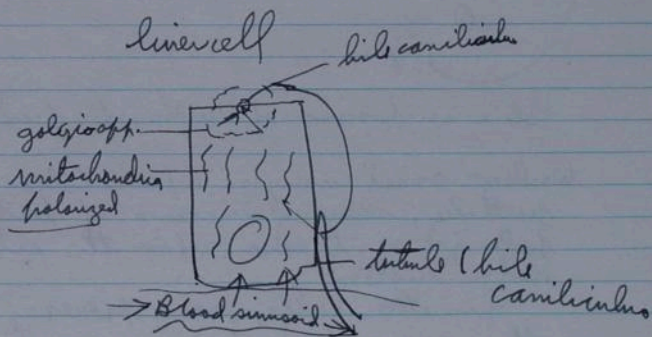 liver cell
bile caniliculu
golgi app.
mitochondria
polarized
tubule (bile
caniliculus
→ Blood sinusoid →